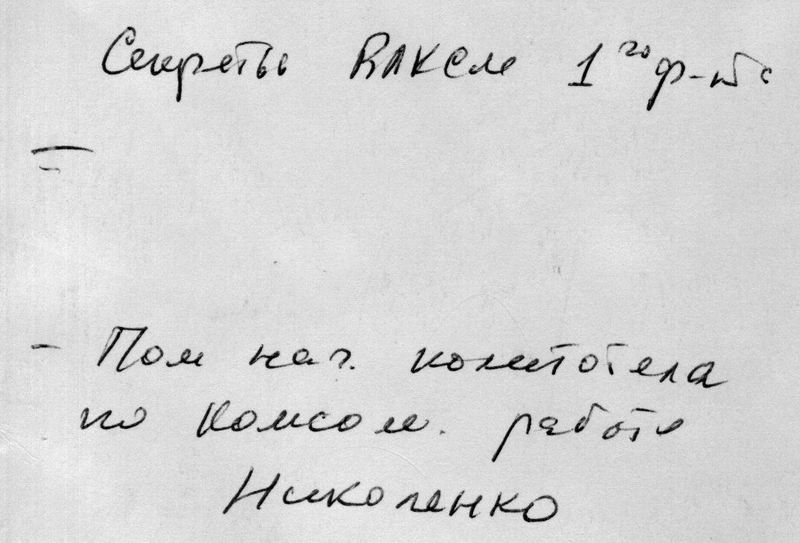 Секреты ВЛКСМ 1го ф-та
- Пом нач. политотдела
по комсом. работе
Николенко